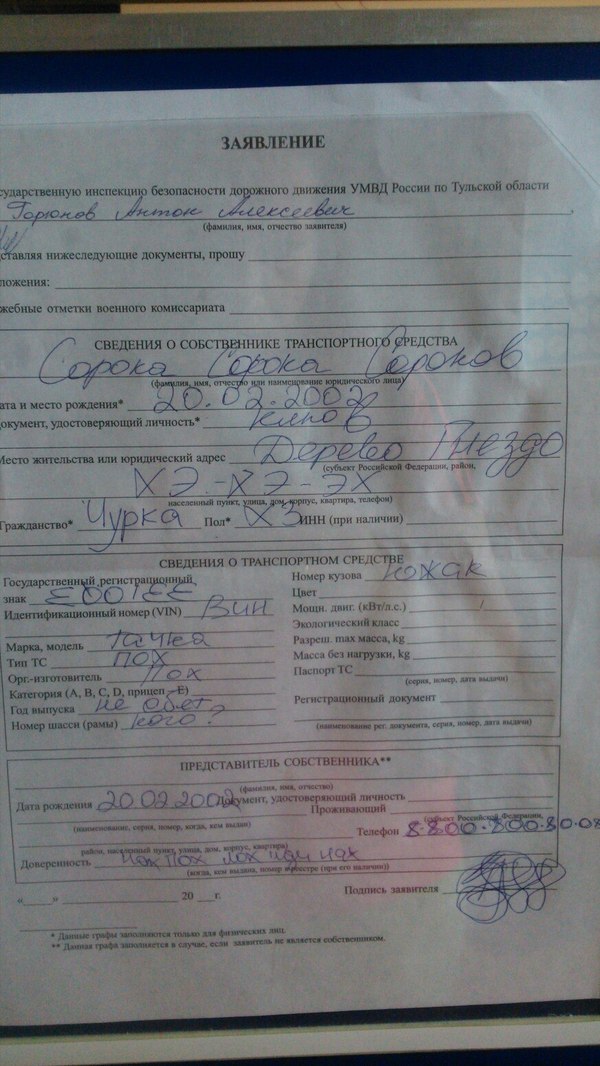 ЗАЯВЛЕНИЕ
сударственную инспекцию безопасности дорожного движения УМВД России по Тульской области
Горюнов Антон Алексеевич,
(фамилия, имя, отчество заявителя)
дставляя нижеследующие документы, прошу
ложения:
жебные отметки военного комиссариата
СВЕДЕНИЯ О СОБСТВЕННИКЕ ТРАНСПОРТНОГО СРЕДСТВА
Сорока Сорока Сороков
(фамилия, имя, отчество или наименование юридического лица)
ата и место рождения* 20.02.2002
Документ, удостоверяющий личность* клюв
Место жительства или юридический адрес Дерево Гнездо
(субъект Российской Федерации, район,
ХЭ-ХЭ-ЭХ
населенный пункт, улица, дом, корпус, квартира, телефон)
Гражданство* Чурка Пол* ХЗ ИНН (при наличии)
СВЕДЕНИЯ О ТРАНСПОРТНОМ СРЕДСТВЕ
Государственный регистрационный
знак
Идентификационный номер (VIN) Вин
Марка, модель тачка
Тип ТС пох
Орг.-изготовитель Пох
Категория (А, В, С, D, прицеп - Е)
Год выпуска не
Номер шасси (рамы) кого?
Номер кузова южак
Цвет
Мощн. двиг. (кВт/л.с.)
Экологический класс
Разреш. max масса, kg
Масса без нагрузки, kg
Паспорт ТС
(серия, номер, дата выдачи)
Регистрационный документ
(наименование рег. документа, серия, номер, дата выдачи)
ПРЕДСТАВИТЕЛЬ СОБСТВЕННИКА**
(фамилия, имя, отчество)
Дата рождения 20.02.2002 Документ, удостоверяющий личность
Проживающий
(наименование, серия, номер, когда, кем выдан)
(субъект Российской Федерации,
Телефон 8-800-800-80-08
район, населенный пункт, улица, дом, корпус, квартира)
Доверенность нах пох лох иди нах
(когда, кем выдана, номер в реестре (при его наличии))
«____» 20 __г. Подпись заявителя
* Данные графы заполняются только для физических лиц.
** Данная графа заполняется в случае, если заявитель не является собственником.